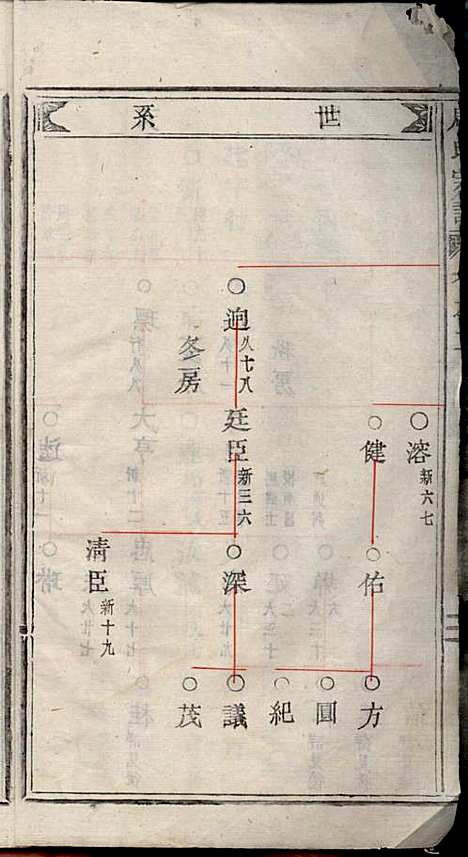 世系
○溶新六七
○健
○佑
○方
○圓
○紀
○迥久七八
廷臣新三六
○深
○議
○茂
冬房
清臣新十九